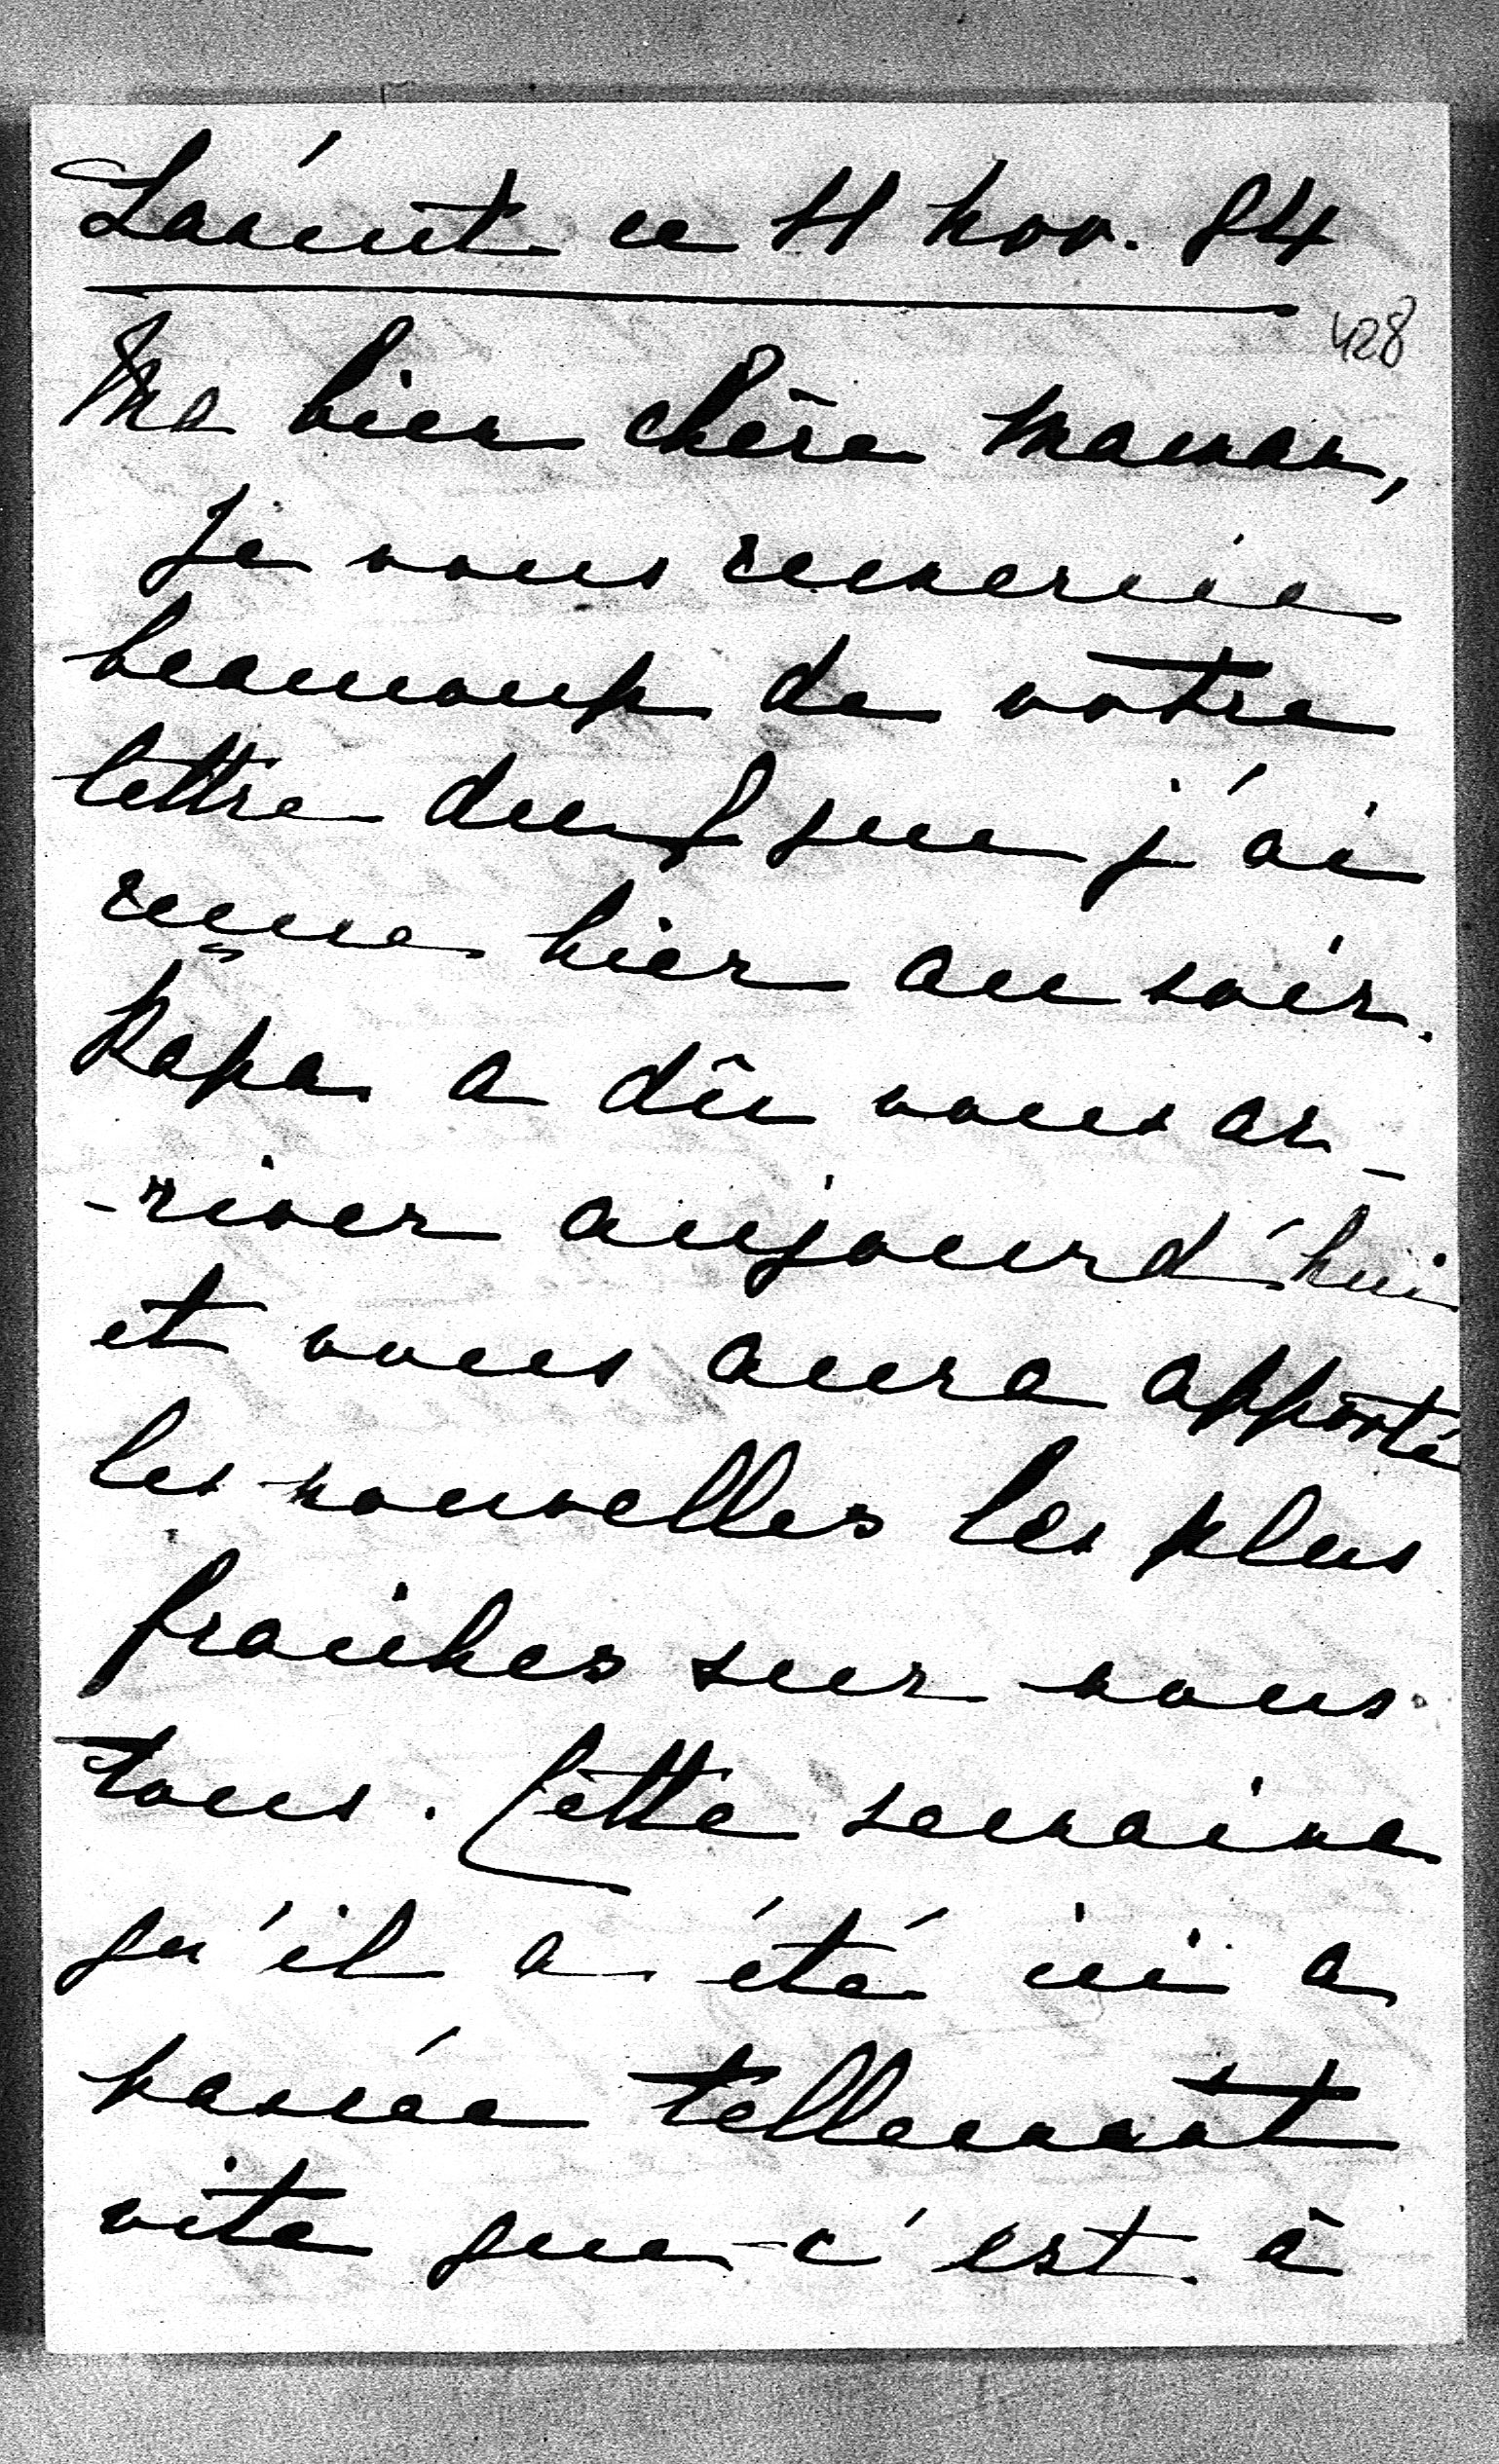 Łańcut ce 11 nov. 84
428
Ma bien chère Maman,
Je vous remercie
beaucoup de votre
lettre du 8 que j'ai
reçue hier au soir.
Papa a dû vous ar-
-river aujourd'hui
et vous aura apporté
les nouvelles les plus
fraiches sur nous
tous. Cette semaine
qu'il a été ici a
passée tellement
vite que c'est à